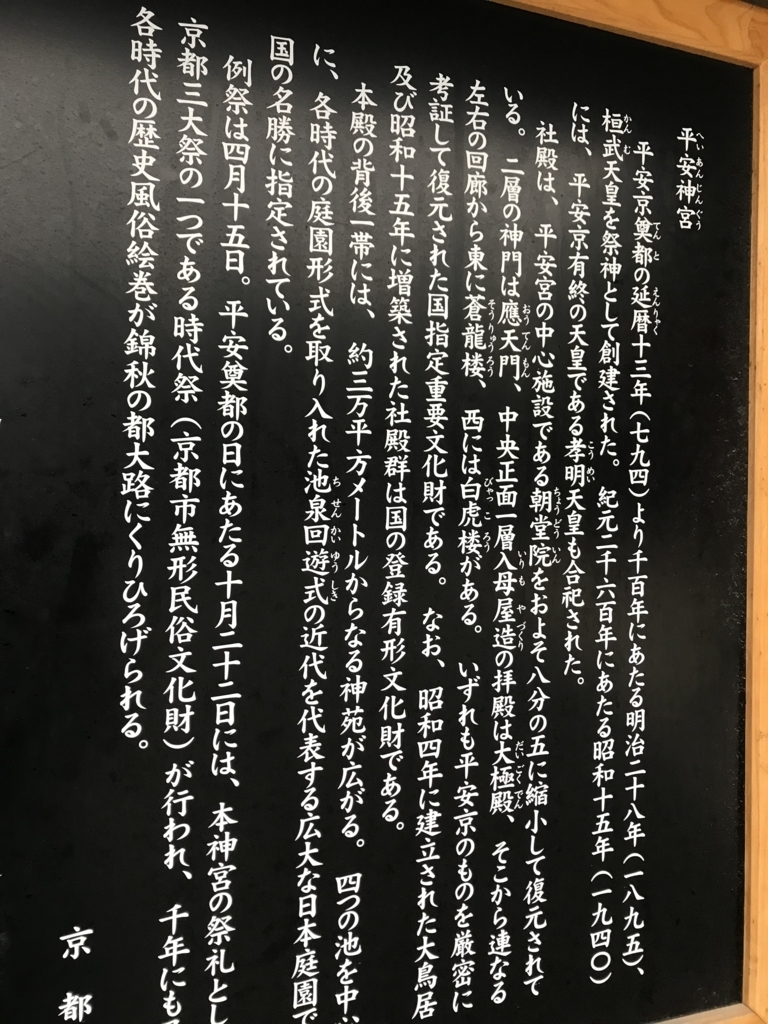 平安神宮
へいあんじんぐう
平安京奠都の延暦十三年（七九四）より千百年にあたる明治二十八年（一八九五）、
てんと えんりゃく
桓武天皇を祭神として創建された。紀元二千六百年にあたる昭和十五年（一九四〇）
かんむ
には、平安京有終の天皇である孝明天皇も合祀された。
こうめい
社殿は、平安宮の中心施設である朝堂院をおよそ八分の五に縮小して復元されて
ちょうどういん
いる。二層の神門は應天門、中央正面一層入母屋造の拝殿は大極殿、そこから連なる
おうてんもん いりもやづくり だいごくでん
左右の回廊から東に蒼龍楼、西には白虎楼がある。いずれも平安京のものを厳密に
そうりゅうろう びゃっころう
考証して復元された国指定重要文化財である。なお、昭和四年に建立された大鳥居
及び昭和十五年に増築された社殿群は国の登録有形文化財である。
本殿の背後一帯には、約三万平方メートルからなる神苑が広がる。四つの池を中
に、各時代の庭園形式を取り入れた池泉回遊式の近代を代表する広大な日本庭園で
ちせんかいゆうしき
国の名勝に指定されている。
例祭は四月十五日。平安奠都の日にあたる十月二十二日には、本神宮の祭礼とし
京都三大祭の一つである時代祭（京都市無形民俗文化財）が行われ、千年にも
各時代の歴史風俗絵巻が錦秋の都大路にくりひろげられる。
京都